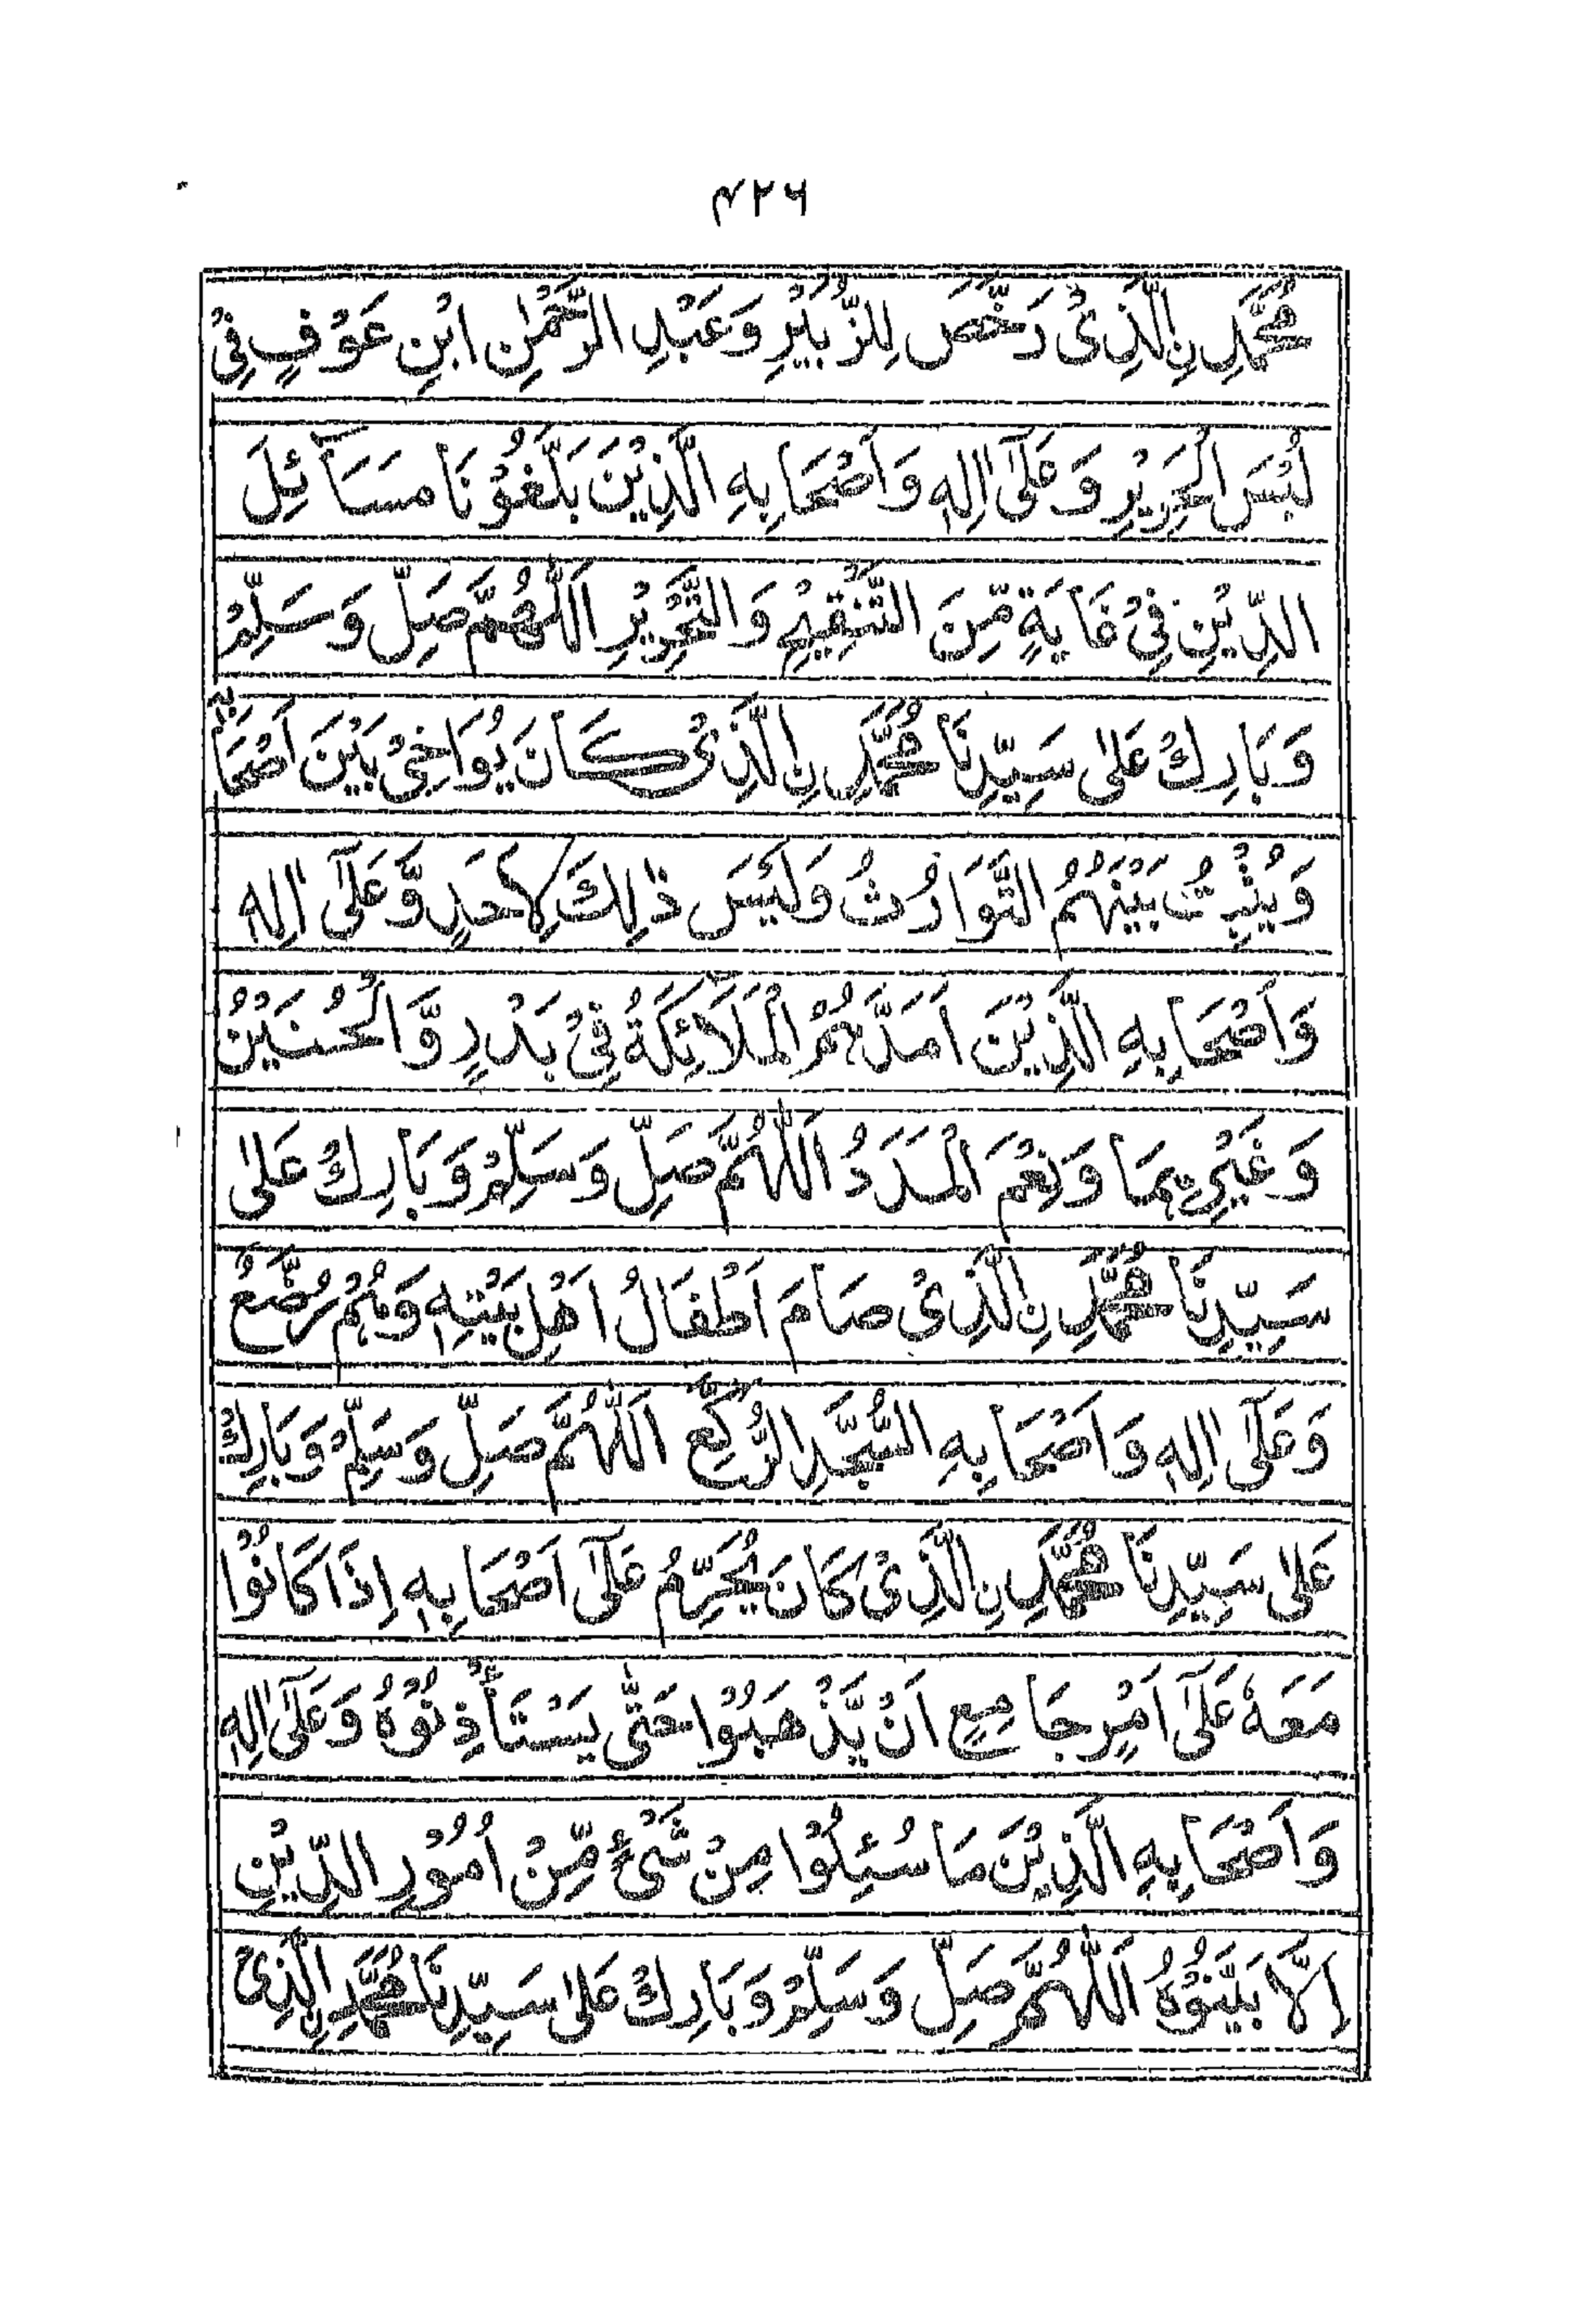 ۴۲۶
مُحَمَّدِ نِ الَّذِىْ رَخَّصَ لِلزُّبَيْرِ وَعَبْدِ الرَّحْمٰنِ ابْنِ عَوْفٍ فِىْ
لُبْسِ الْحَرِيْرِ وَعَلٰٓى اٰلِهٖ وَاَصْحَابِهِ الَّذِيْنَ بَلَّغُوْنَا مَسَآئِلَ
الدِّيْنِ فِىْ غَايَةٍ مِّنَ التَّنْقِيْحِ وَالتَّحْرِيْرِ اَللّٰهُمَّ صَلِّ وَسَلِّمْ
وَبَارِكْ عَلٰى سَيِّدِنَا مُحَمَّدِ نِ الَّذِىْ كَانَ يُوَاخِىْ بَيْنَ اَصْحَابِهٖ
وَيُثْبِتُ بَيْنَهُمُ التَّوَارُثُ وَلَيْسَ ذٰلِكَ لِاَحَدٍ وَّعَلٰٓى اٰلِهٖ
وَاَصْحَابِهِ الَّذِيْنَ اَمَدَّهُمُ الْمَلَآئِكَةُ فِىْ بَدْرٍ وَّالْحُنَيْنِ
وَغَيْرِهِمَا وَنِعْمَ الْمَدَدُ اَللّٰهُمَّ صَلِّ وَسَلِّمْ وَبَارِكْ عَلٰى
سَيِّدِنَا مُحَمَّدِ نِ الَّذِىْ صَامَ اَطْفَالُ اَهْلِ بَيْتِهٖ وَهُمْ رُضَّعٌ
وَعَلٰٓى اٰلِهٖ وَاَصْحَابِهِ السُّجَّدِ الرُّكَّعِ اَللّٰهُمَّ صَلِّ وَسَلِّمْ وَبَارِكْ
عَلٰى سَيِّدِنَا مُحَمَّدِ نِ الَّذِىْ كَانَ يُحَرِّمُ عَلٰٓى اَصْحَابِهٖ اِذَا كَانُوْا
مَعَهٗ عَلٰٓى اَمْرٍ جَامِعٍ اَنْ يَّذْهَبُوْا حَتّٰى يَسْتَأْذِنُوْهُ وَعَلٰٓى اٰلِهٖ
وَاَصْحَابِهِ الَّذِيْنَ مَا سُئِلُوْا مِنْ شَىْءٍ مِّنْ اُمُوْرِ الدِّيْنِ
اِلَّا بَيَّنُوْهُ اَللّٰهُمَّ صَلِّ وَسَلِّمْ وَبَارِكْ عَلٰى سَيِّدِنَا مُحَمَّدِ نِ الَّذِىْ